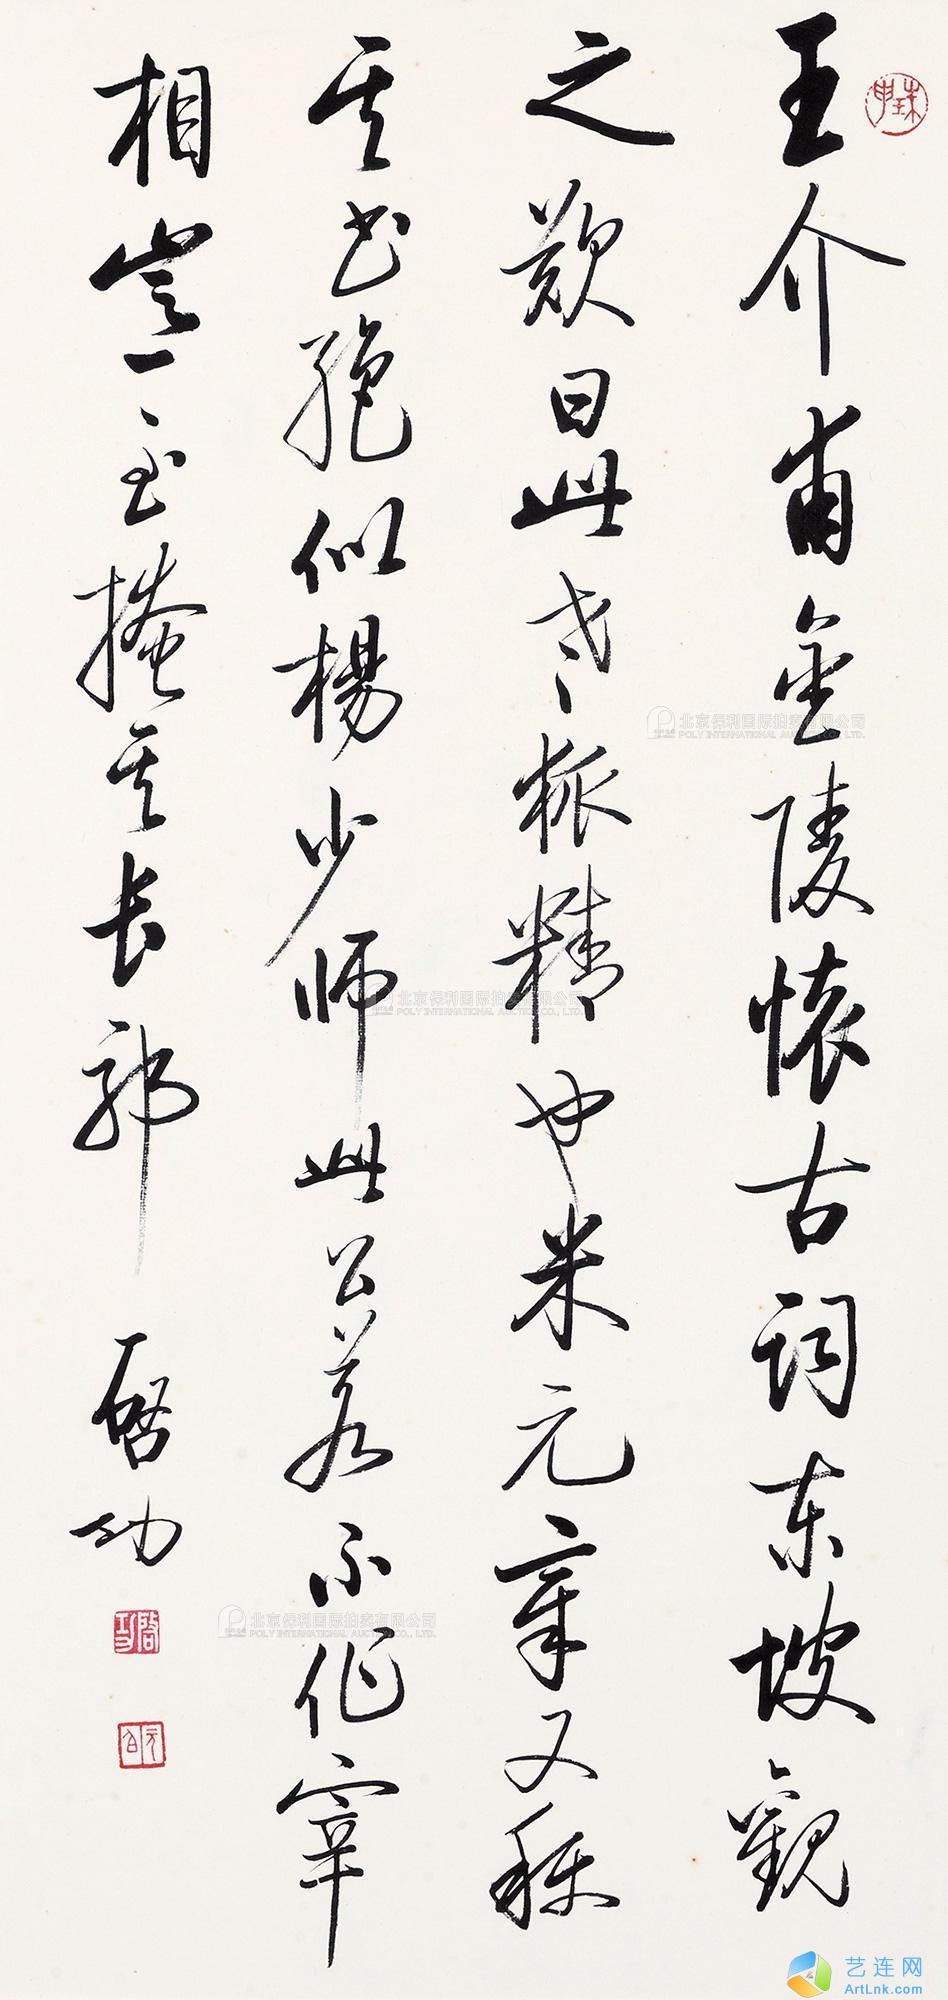 王介甫金陵懷古詞东坡觀
之歎曰此老狐精也米元章又稱
其书絕似楊少师此公若不作宰
相豈至掩其长耶
啟功
啟功
元白
北京保利国际拍卖有限公司
POLY INTERNATIONAL AUCTION CO., LTD.
北京保利国际拍卖有限公司
POLY INTERNATIONAL AUCTION CO., LTD.
北京保利国际拍卖有限公司
POLY INTERNATIONAL AUCTION CO., LTD.
艺连网
ArtLnk.com